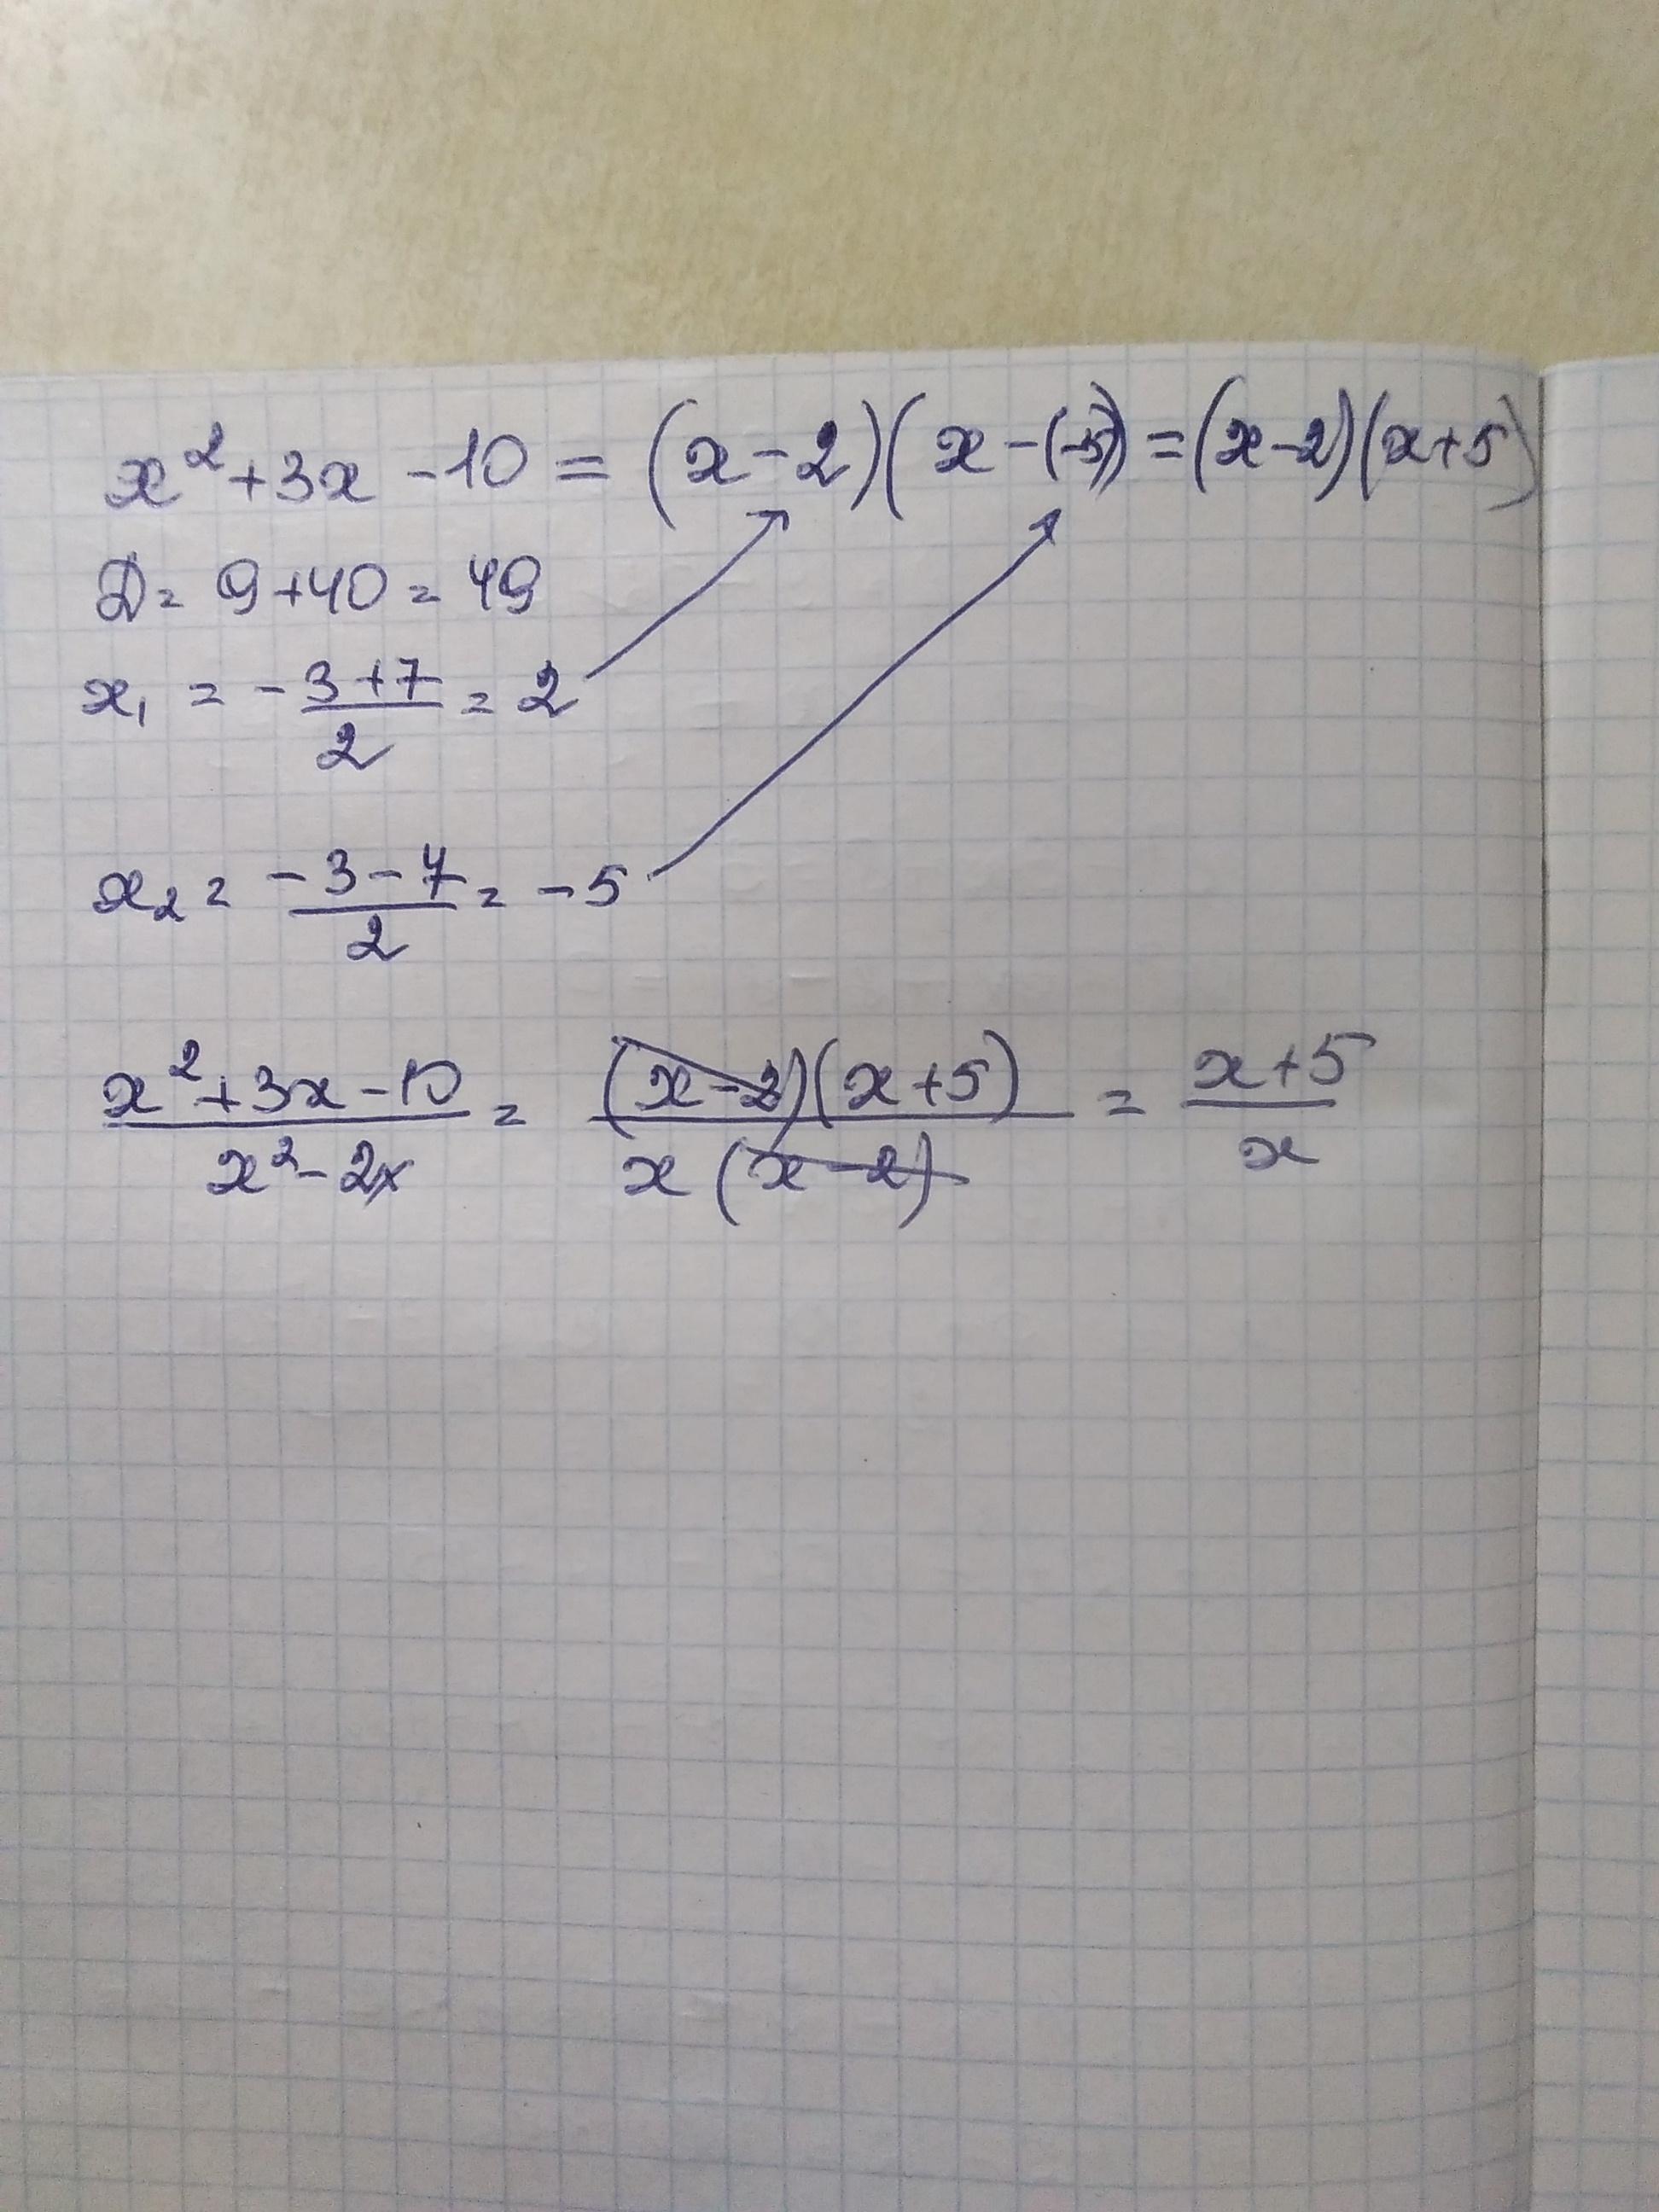 x² + 3x - 10 = (x - 2)(x - (-5)) = (x - 2)(x + 5)
D = 9 + 40 = 49
x₁ = -(3 + 7)/2 = 2
x₂ = (-3 - 7)/2 = -5
(x² + 3x - 10)/(x² - 2x) = ((x - 2)(x + 5))/(x(x - 2)) = (x + 5)/x